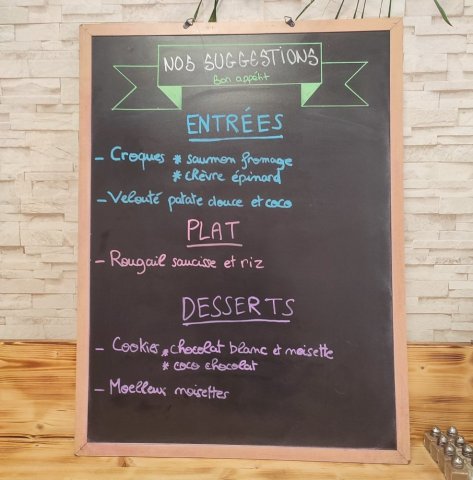 NOS SUGGESTIONS
Bon appétit
ENTRÉES
- Croques * saumon fromage
* chèvre épinard
- Velouté patate douce et coco
PLAT
- Rougail saucisse et riz
DESSERTS
- Cookies * chocolat blanc et noisette
* coco chocolat
- Moelleux noisettes